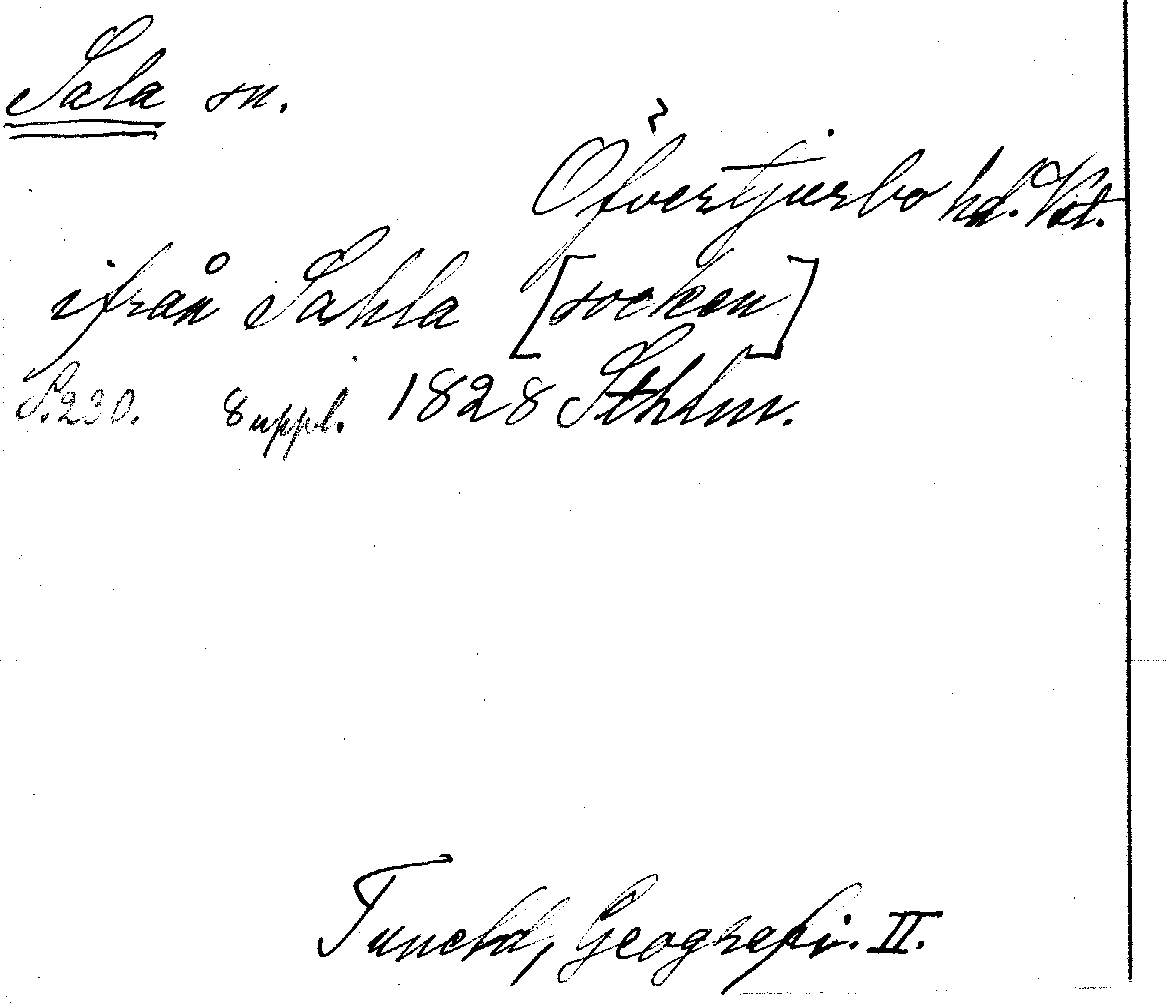 Sala sn.
Öfvertjurbo hd. Vstl.
ifrån Sahla [socken]
S. 230. 8 uppl. 1828 Sthlm.
Tuneld, Geografi. II.